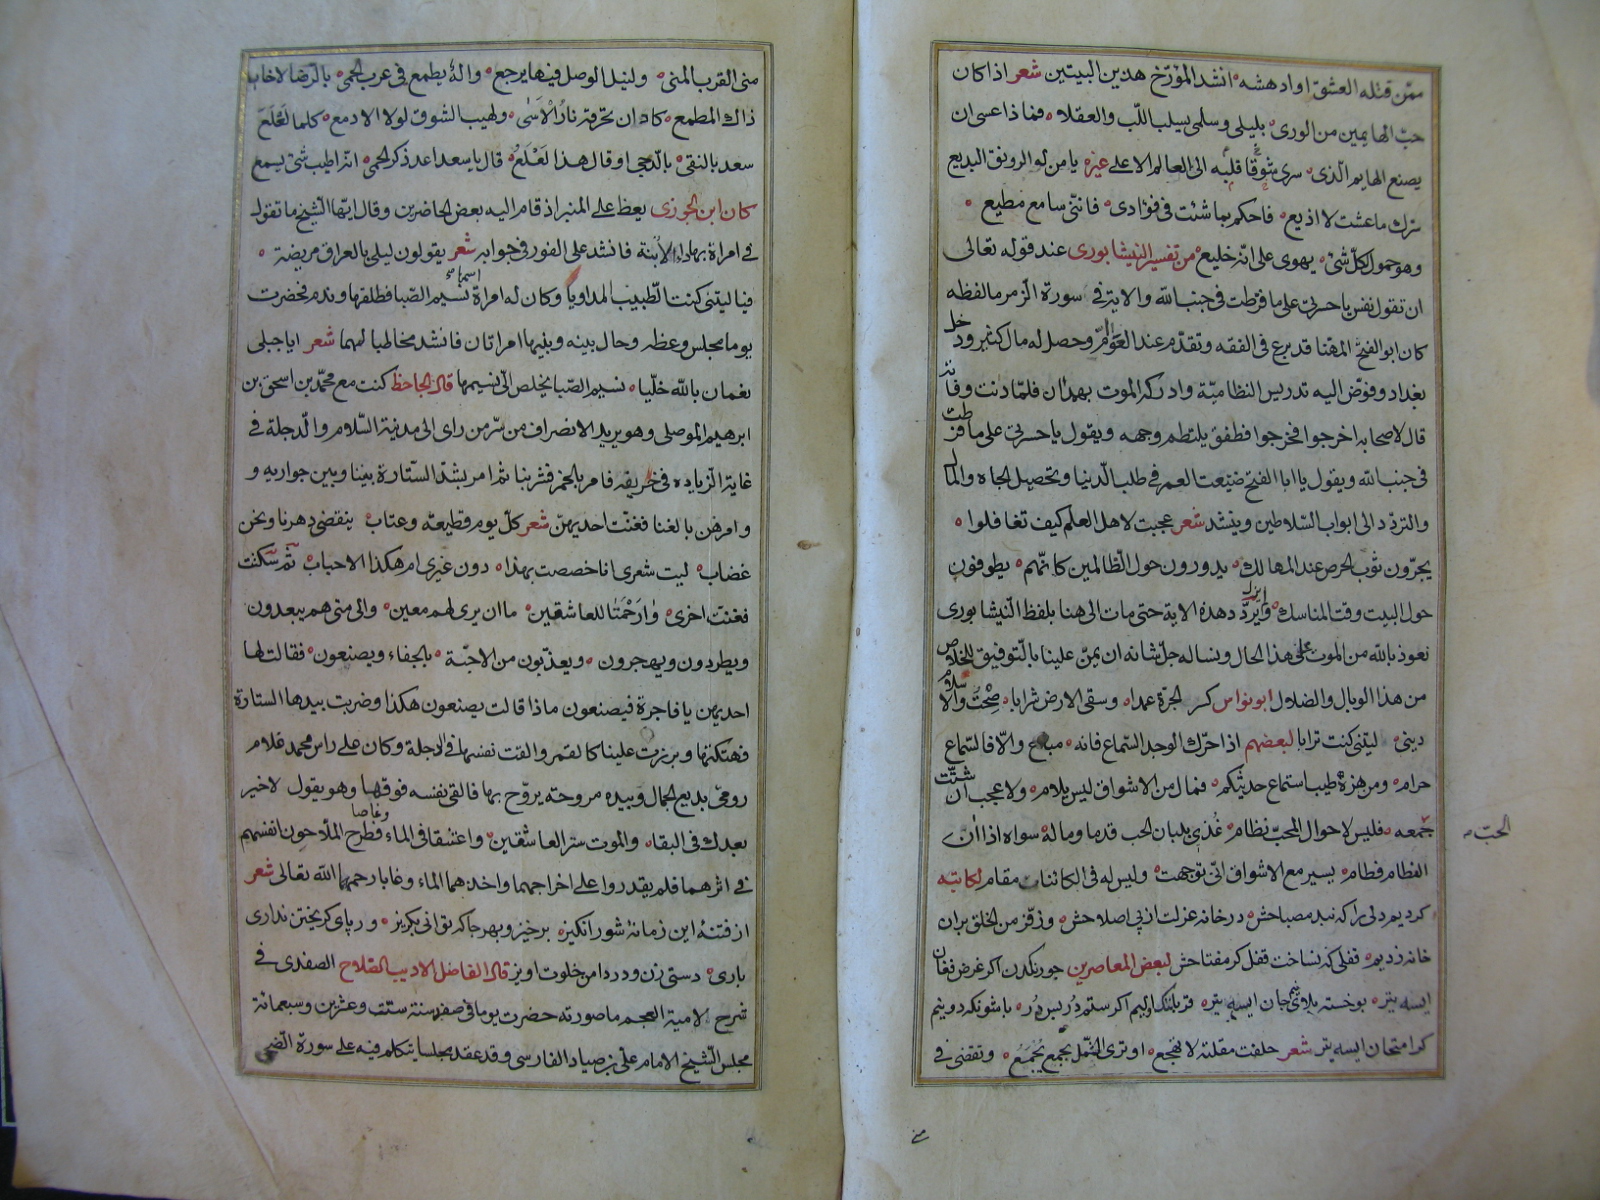 ممّن قتله العشق او ادهشه انشد المؤرّخ هذين البيتين شعر اذا كان
حبّ الهايمين من الورى بليلى وسلمى يسلب اللّب والعقلا فماذا عسى ان
يصنع الهايم الّذى سرى شوقا قلبه الى العالم الاعلى غيره يا من له الرونق البديع
ترك ما عشت لا اذيع فاحكم بما شئت فى فؤادى فانّنى سامع مطيع
وهو حمول لكلّ شئ يهوى على انّه خليع من تفسير النيشابورى عند قوله تعالى
ان تقول نفس يا حسرتى على ما فرّطت فى جنب الله والاية فى سورة الزّمر ما لفظه
كان ابو الفتح المهنا قد برع فى الفقه وتقدّم عند العوامّ وحصل له مال كثير ودخل
بغداد وفوّض اليه تدريس النظاميّة وادركه الموت بهمدان فلمّا دنت وفاته
قال لاصحابه اخرجوا فخرجوا فطفق يلتطم وجهه ويقول يا حسرتى على ما فرّطت
فى جنب الله ويقول يا ابا الفتح ضيّعت العمر فى طلب الدّنيا وتحصيل الجاه والمال
والتردّد الى ابواب السّلاطين وينشد شعر عجبت لاهل العلم كيف تغافلوا
يجرّون ثوب الحرص عند المهالك يدورون حول الظّالمين كانّهم يطوفون
حول البيت وقت المناسك ويردّد هذه الاية حتى مات الى هنا بلفظ النّيشابورى
نعوذ بالله من الموت على هذا الحال ونساله جلّ شانه ان يمنّ علينا بالتّوفيق للخلاص
من هذا الوبال والضلال ابونواس كسر الجرّة عمدا وسقى الارض شرابا صحت والاسلام
دينى ليتنى كنت ترابا لبعضهم اذا حرّك الوجد السّماع فانّه مباح والّا فالسّماع
حرام ومن هزّه طيب استماع حديثكم فمال من الاشواق ليس يلام ولا عجب ان شتّت
جمعه فليس لاحوال المحبّ نظام غذى بلبان الحب قدما وماله سواه اذا ان
الحبّ
الفطام فطام يسير مع الاشواق انّى توجّهت وليس له فى الكائنات مقام لكاتبه
كرديم دلى را كه نبد مصباحش در خانه عزلت از پى اصلاحش وز فرّ من الخلق بران
خانه زديم قفلى كه نساخت قفل كر مفتاحش لبعض المعاصرين
حلفت مقلته لا تهجع او ترى الشّمل بجمع يجمع وتقضى فى
منى
منى القرب المنى وليل الوصل فيها يرجع واله يطمع فى عرب الحمى بالرّضا لا خاب
ذاك المطمع كاد ان تحرقه نار الاسى ولهيب الشوق لولا الادمع كلما لعلع
سعد بالنقى بالدّجى او قال هذا لعلع قال يا سعد اعد ذكر الحمى انّه اطيب شئ يسمع
كان ابن الجوزى يعظ على المنبر اذ قام اليه بعض الحاضرين وقال ايّها الشّيخ ما تقول
فى امراة بها داء الابنة فانشد على الفور فى جوابه شعر يقولون ليلى بالعراق مريضة
فيا ليتنى كنت الطّبيب المداويا وكان له امراة اسمها نسيم الصّبا فطلّقها وندم فحضرت
يوما مجلس وعظه وحال بينه وبينها امراتان فانشد مخاطبا لهما شعر ايا جبلى
نعمان بالله خلّيا نسيم الصّبا يخلص الىّ نسيمها قال الجاحظ كنت مع محمّد بن اسحق بن
ابرهيم الموصلى وهو يريد الانصراف من سرّ من راى الى مدينة السّلام والدّجلة فى
غاية الزّياده فامر بالخمر فشربنا ثم امر بشدّ السّتارة بيننا وبين جواريه و
وامرهن بالغنا فغنّت احديهنّ شعر كلّ يوم قطيعة وعتاب ينقضى دهرنا ونحن
غضاب ليت شعرى انا خصصت بهذا دون غيرى ام هكذا الاحباب ثم سكتت
فغنّت اخرى وارحمتا للعاشقين ما ان يرى لهم معين والى متى هم يبعدون
ويطردون ويهجرون ويعذّبون من الاحبّة بالجفاء ويصنعون فقالت لها
احديهن يا فاجرة فيصنعون ماذا قالت يصنعون هكذا وضربت بيدها الستارة
فهتكتها وبرزت علينا كالقمر والقت نفسها فى الدجلة وكان على راس محمد غلام
رومى بديع الجمال وبيده مروحة يروّح بها فالقى نفسه فوقها وهو يقول لا خير
بعدك فى البقاء والموت ستر العاشقين واعتنقا فى الماء وغاصا فطرح الملّاحون انفسهم
فى اثرهما فلم يقدروا على اخراجهما واخذهما الماء وغابا رحمهما الله تعالى شعر
از فتنۀ اين زمانۀ شورانكيز برخيز وبهرجا كه توانى بكريز ور پاى كريختن ندارى
بارى دستى زن ودر دامن خلوت اويز قال الفاضل الاديب الصّلاح الصفدى فى
شرح لامية العجم ما صورته حضرت يوما فى صفر سنة ستّ وعشرين وسبعمائة
مجلس الشّيخ الامام على بن صياد الفارسى وقد عقد مجلسا يتكلم فيه على سورة الضّحى